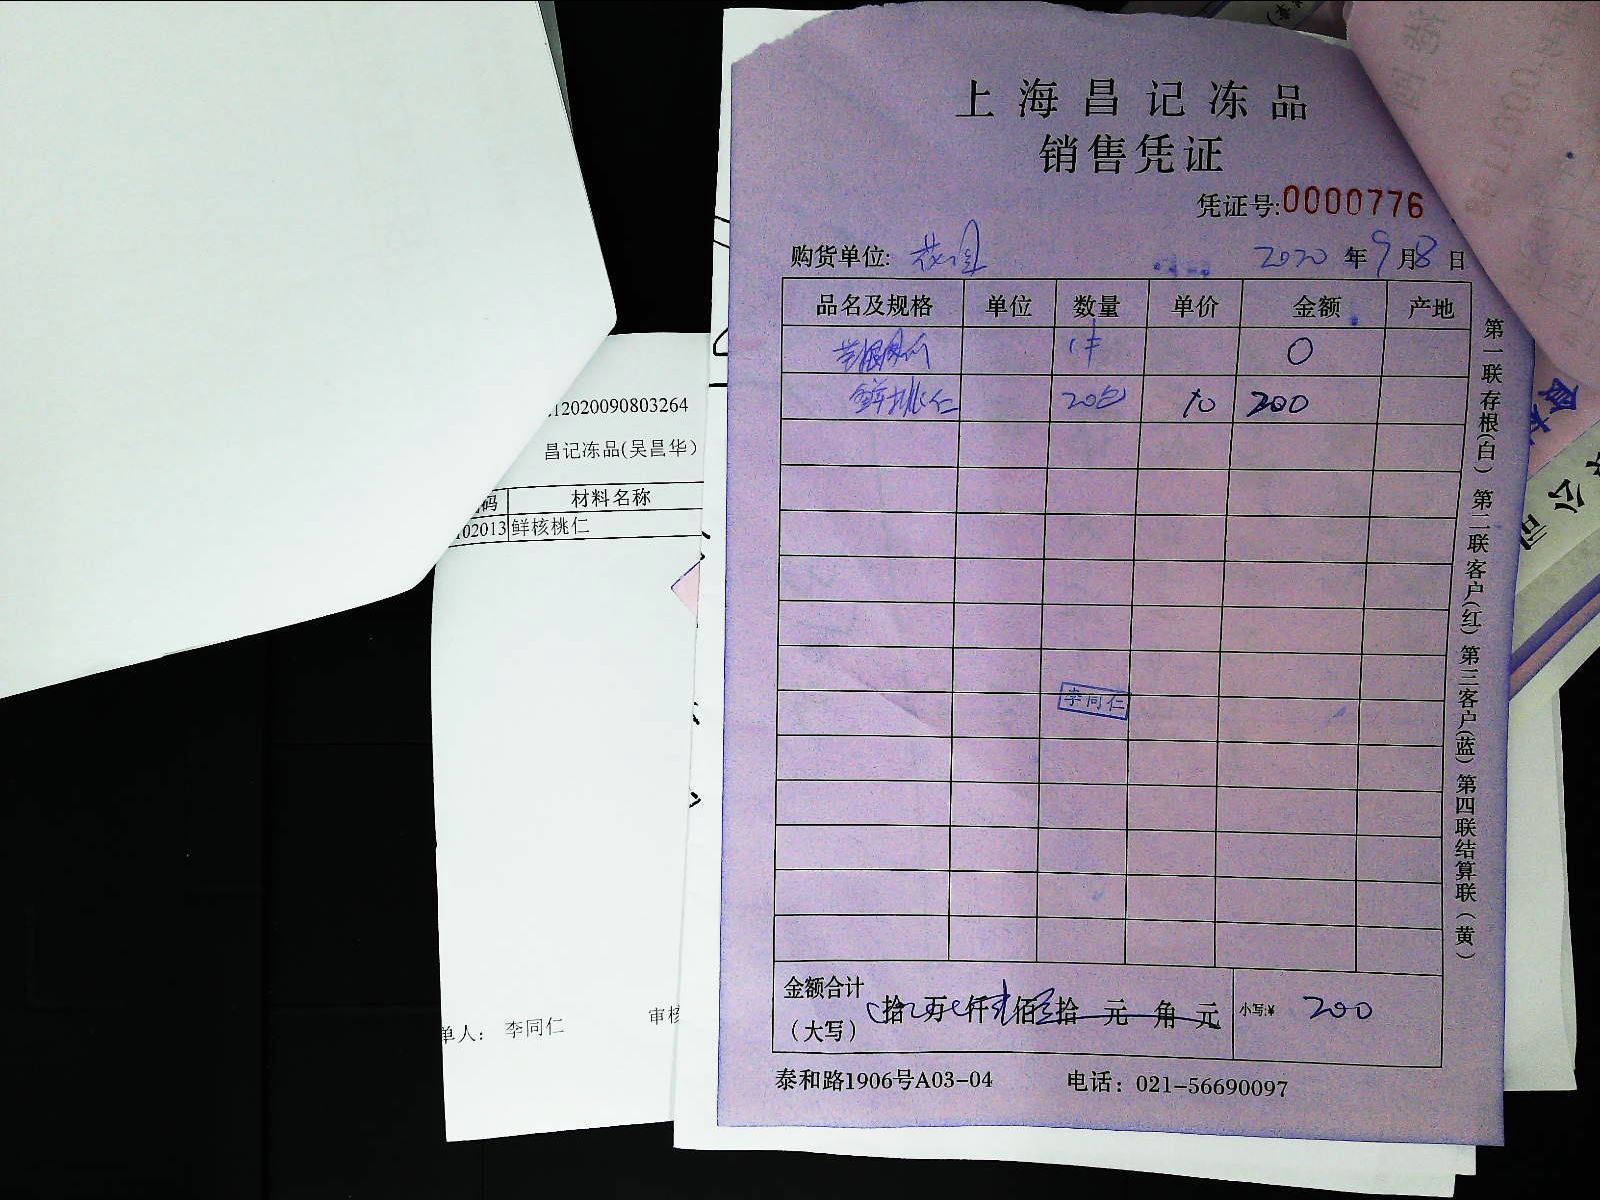 上海昌记冻品
销售凭证
凭证号:0000776
购货单位: 花园 2020年9月8日
品名及规格 单位 数量 单价 金额 产地
1件 0
鲜桃仁 20包 10 200
李同仁
金额合计（大写） 拾 万 仟 佰 拾 元 角 元 小写:¥ 200
泰和路1906号A03-04 电话：021-56690097
第一联存根(白) 第二联客户(红) 第三客户(蓝) 第四联结算联(黄)
12020090803264
昌记冻品(吴昌华)
码 材料名称
02013 鲜核桃仁
单人： 李同仁 审核
公司